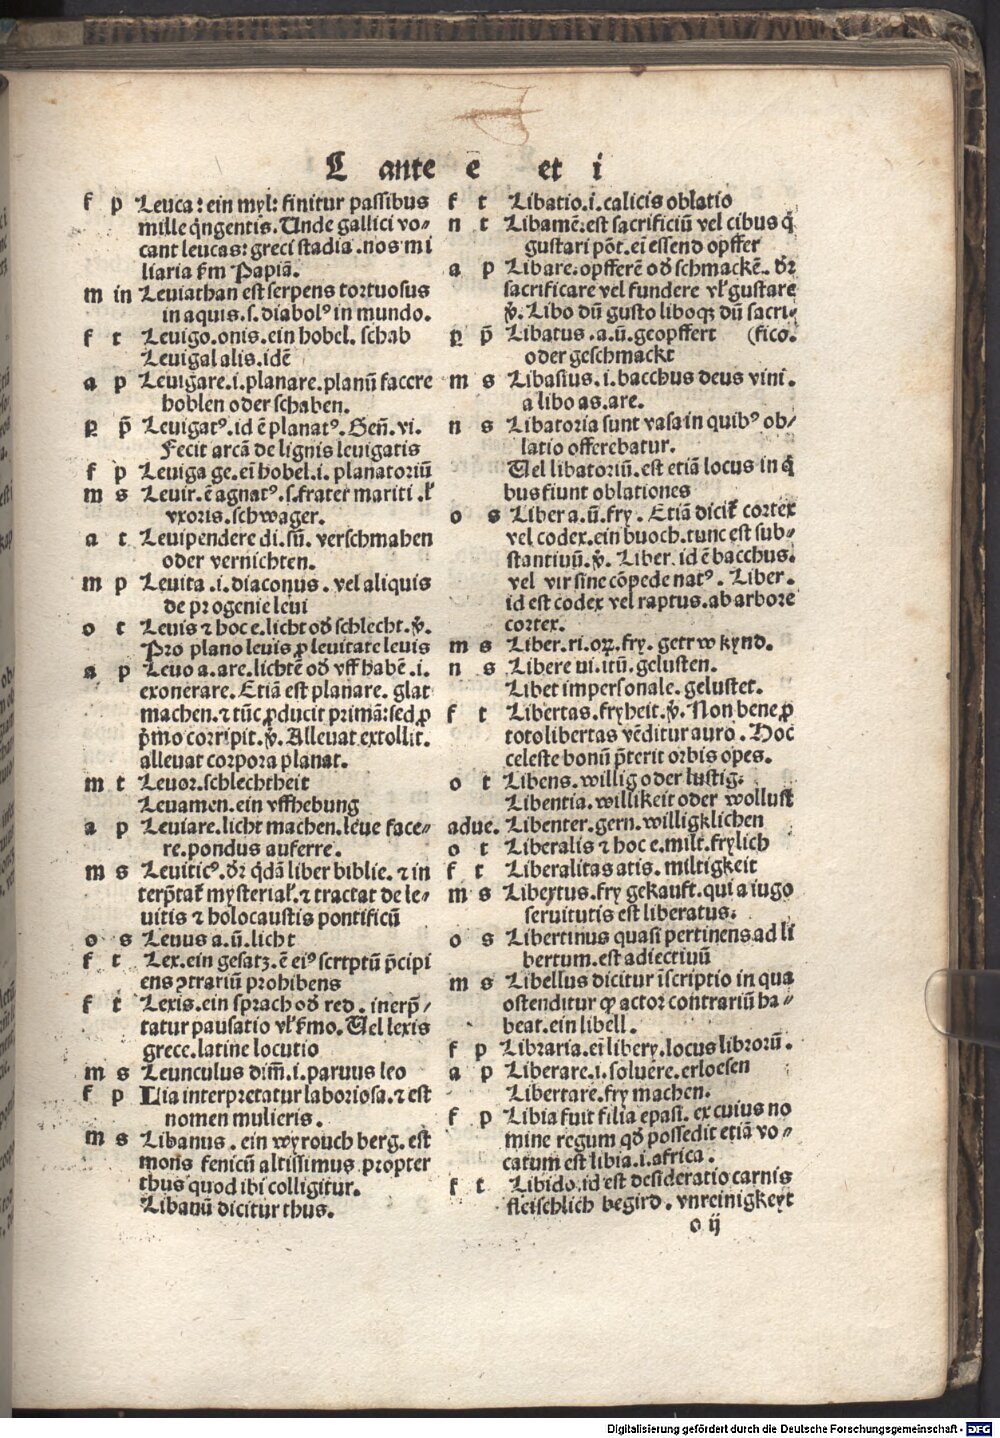 L ante e et i
f p Leuca: ein myl: finitur passibus
mille q̈ngentis. Unde gallici vo⸗
cant leucas: greci stadia. nos mi
liaria ẜm Papiā.
m in Leuiathan est serpens tortuosus
in aquis. s. diabolꝰ in mundo.
f t Leuigo. onis. ein hobel. schab
Leuigal alis. idē
a p Leuigare. i. planare. planū facere
hoblen oder schaben.
ꝑ p̄ Leuigatꝰ. id ē planatꝰ. Geñ. vi.
Fecit arcā de lignis leuigatis
f p Leuiga ge. ei hobel. i. planatoriū
m s Leuir. ē agnatꝰ. s. frater mariti. ł
vxoris. schwager.
a t Leuipendere di. sū. verschmahen
oder vernichten.
m p Leuita. i. diaconus. vel aliquis
de progenie leui
o t Leuis ⁊ hoc e. licht od̛ schlecht. v̛.
Pro plano leuis ꝓ leuitate leuis
a p Leuo a. are. lichtē od̛ vff habē. i.
exonerare. Etiā est planare. glat
machen. ⁊ tūc ꝓducit primā: sed ꝓ
p̛mo corripit. v̛. Alleuat extollit.
alleuat corpora planat.
m t Leuor. schlechtheit
Leuamen. ein vffhebung
a p Leuiare. licht machen. leue face⸗
re. pondus auferre.
m s Leuiticꝰ. dr̛ q̇dā liber biblie. ⁊ in
terp̄tat̛ mysterial̛. ⁊ tractat de le⸗
uitis ⁊ holocaustis pontificū
o s Leuus a. ū. licht
f t Lex. ein gesatz. ē eiꝰ scrtptū p̄cipi
ens ꝯtrariū prohibens
f t Lexis. ein sprach od̛ red. inerp̄⸗
tatur pausatio vł ẜmo. Uel lexis
grece. latine locutio
m s Leunculus dim̄. i. paruus leo
f p Lia interpretatur laboriosa. ⁊ est
nomen mulieris.
m s Libanus. ein wyrouch berg. est
mons fenicū altissimus propter
thus quod ibi colligitur.
Libanū dicitur thus.
f t Libatio. i. calicis oblatio
n t Libamē: est sacrificiū vel cibus q̇
gustari pōt. ei essend opffer
a p Libare. opfferē od̛ schmackē. dr̛
sacrificare vel fundere vł gustare
v̛. Libo dū gusto liboqꝫ dū sacri⸗
ꝑ p̄ Libatus. a. ū. geopffert (fico.
oder geschmackt
m s Libasius. i. bacchus deus vini.
a libo as. are.
n s Libatoria sunt vasa in quibꝰ ob⸗
latio offerebatur.
Uel libatoriū. est etiā locus in q̇
bus fiunt oblationes
o s Liber a. ū. fry. Etiā dicit̛ cortex
vel codex. ein buoch. tunc est sub⸗
stantiuū. v̛. Liber. id ē bacchus.
vel vir sine cōpede natꝰ. Liber.
id est codex vel raptus. ab arbore
cortex.
m s Liber. ri. oꝝ. fry. getrw kynd.
n s Libere ui. itū. gelusten.
Libet impersonale. gelustet.
f t Libertas. fryheit. v̛. Non bene ꝓ
toto libertas vēditur auro. Hoc
celeste bonū p̄terit orbis opes.
o t Libens. willig oder lustig.
Libentia. willikeit oder wollust
adue. Libenter. gern. willigklichen
o t Liberalis ⁊ hoc e. milt. frylich
f t Liberalitas atis. miltigkeit
m s Libertus. fry gekauft. qui a iugo
seruitutis est liberatus.
o s Libertinus quasi pertinens ad li
bertum. est adiectiuū
m s Libellus dicitur īscriptio in qua
ostenditur ꝙ actor contrariū ha⸗
beat. ein libell.
f p Libraria. ei libery. locus librorū.
a p Liberare. i. soluere. erloesen
Libertare. fry machen.
f p Libia fuit filia epafi. ex cuius no
mine regum qd̛ possedit etiā vo⸗
catum est libia. i. africa.
f t Libido. id est desideratio carnis
fleischlich begird. vnreinigkeyt
o ij
Digitalisierung gefördert durch die Deutsche Forschungsgemeinschaft - DFG